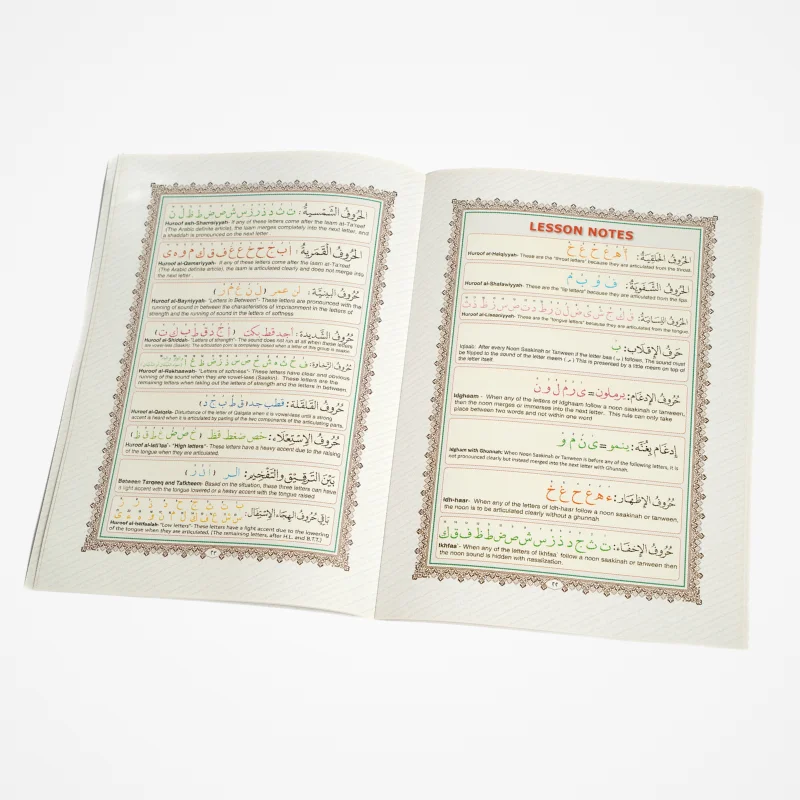 LESSON NOTES
الحُرُوفُ الحَلقِيَّةُ: أ ه ع ح غ خ
Huroof al-Halqiyyah- These are the "throat letters" because they are articulated from the throat.
الحُرُوفُ الشَّفَوِيَّةُ: ف و ب م
Huroof al-Shafawiyyah- These are the "lip letters" because they are articulated from the lips.
الحُرُوفُ اللِّسَانِيَّةُ:
Huroof al-Lissaniyyah- These are the "tongue letters" because they are articulated from the tongue.
حَرفُ الإِقْلَابِ: ب
Iqlaab: After every Noon Saakinah or Tanween if the letter baa (ب) follows. The sound must
be flipped to the sound of the letter meem (م) This is presented by a little meem on top of
the letter itself.
حُرُوفُ الإِدغَامِ: يرملون = ي ر م ل و ن
Idghaam - When any of the letters of Idghaam follow a noon saakinah or tanween,
then the noon merges or immerses into the next letter. This rule can only take
place between two words and not within one word
إِدغَام بِغُنَّه: ينمو = ي ن م و
Idgham with Ghunnah: When Noon Saakinah or Tanween is before any of the following letters, it is
not pronounced clearly but instead merged into the next letter with Ghunnah.
حُرُوفُ الإِظْهَارِ: ء ه ع ح غ خ
Idh-haar- When any of the letters of Idh-haar follow a noon saakinah or tanween,
the noon is to be articulated clearly without a ghunnah
حُرُوفُ الإِخفَاء: ت ث ج د ذ ز س ش ص ض ط ظ ف ق ك
Ikhfaa'- When any of the letters of Ikhfaa' follow a noon saakinah or tanween then
the noon sound is hidden with nasalization.
٢٢
الحُرُوفُ الشَّمْسِيةُ: ت ث د ذ ر ز س ش ص ض ط ظ ل ن
Huroof ash-Shamsiyyah- If any of these letters come after the laam at-Ta'reef
(The Arabic definite article), the laam merges completely into the next letter, and
a shaddah is pronounced on the next letter
الحُرُوفُ القَمَرِيةُ: أ ب ج ح خ ع غ ف ق ك م و ه ي
Huroof al-Qamariyyah- If any of these letters come after the laam at-Ta'reef
(The Arabic definite article), the laam is articulated clearly and does not merge into
the next letter
حُرُوفُ البَينِيَّة: لن عمر (ل ن ع م ر)
Huroof al-Bayniyyah- "Letters in Between"- These letters are pronounced with the
running of sound in between the characteristics of imprisonment in the letters of
strength and the running of sound in the letters of softness
حُرُوفُ الشَّدِيدة: أجد قط بكت (أ ج د ق ط ب ك ت)
Huroof al-Shiddah- "Letters of strength"- The sound does not run at all when these letters
are vowel-less (Saakin).
حُرُوفُ الرَّخَاوة:
Huroof al-Rakhaawah- "Letters of softness"- These letters have clear and obvious
running of the sound when they are vowel-less (Saakin). These letters are the
remaining letters when taking out the letters of strength and the letters in between.
حُرُوفُ القَلْقَلَة: قطب جد (ق ط ب ج د)
Huroof al-Qalqala- Disturbance of the letter of Qalqala when it is vowel-less until a strong
accent is heard when it is articulated by parting of the two components of the articulating parts.
حُرُوفُ الإستِعْلَاء: خص ضغط قظ (خ ص ض غ ط ق ظ)
Huroof al-Isti'laa'- "High letters"- These letters have a heavy accent due to the raising
of the tongue when they are articulated.
بَيْنَ التَّرقِيقِ والتَّفْخِيمِ: الر (ا ل ر)
Between Tarqeeq and Tafkheem- Based on the situation, these three letters can have
a light accent with the tongue lowered or a heavy accent with the tongue raised
بَاقِي حُرُوفُ الهِجَاء الإِستِفَال:
Huroof al-Istifaalah- "Low letters"- These letters have a light accent due to the lowering
of the tongue when they are articulated. (The remaining letters, after H.L. and B.T.T.)
٢٣